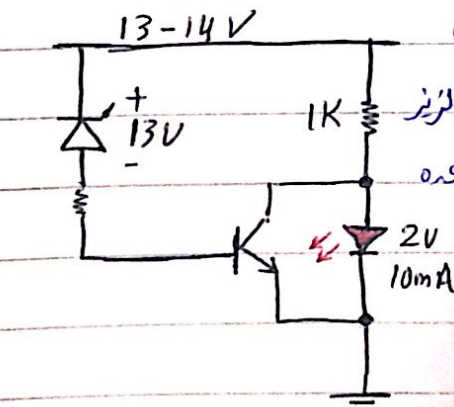 13-14V
+
13V
-
1K
2V
10mA